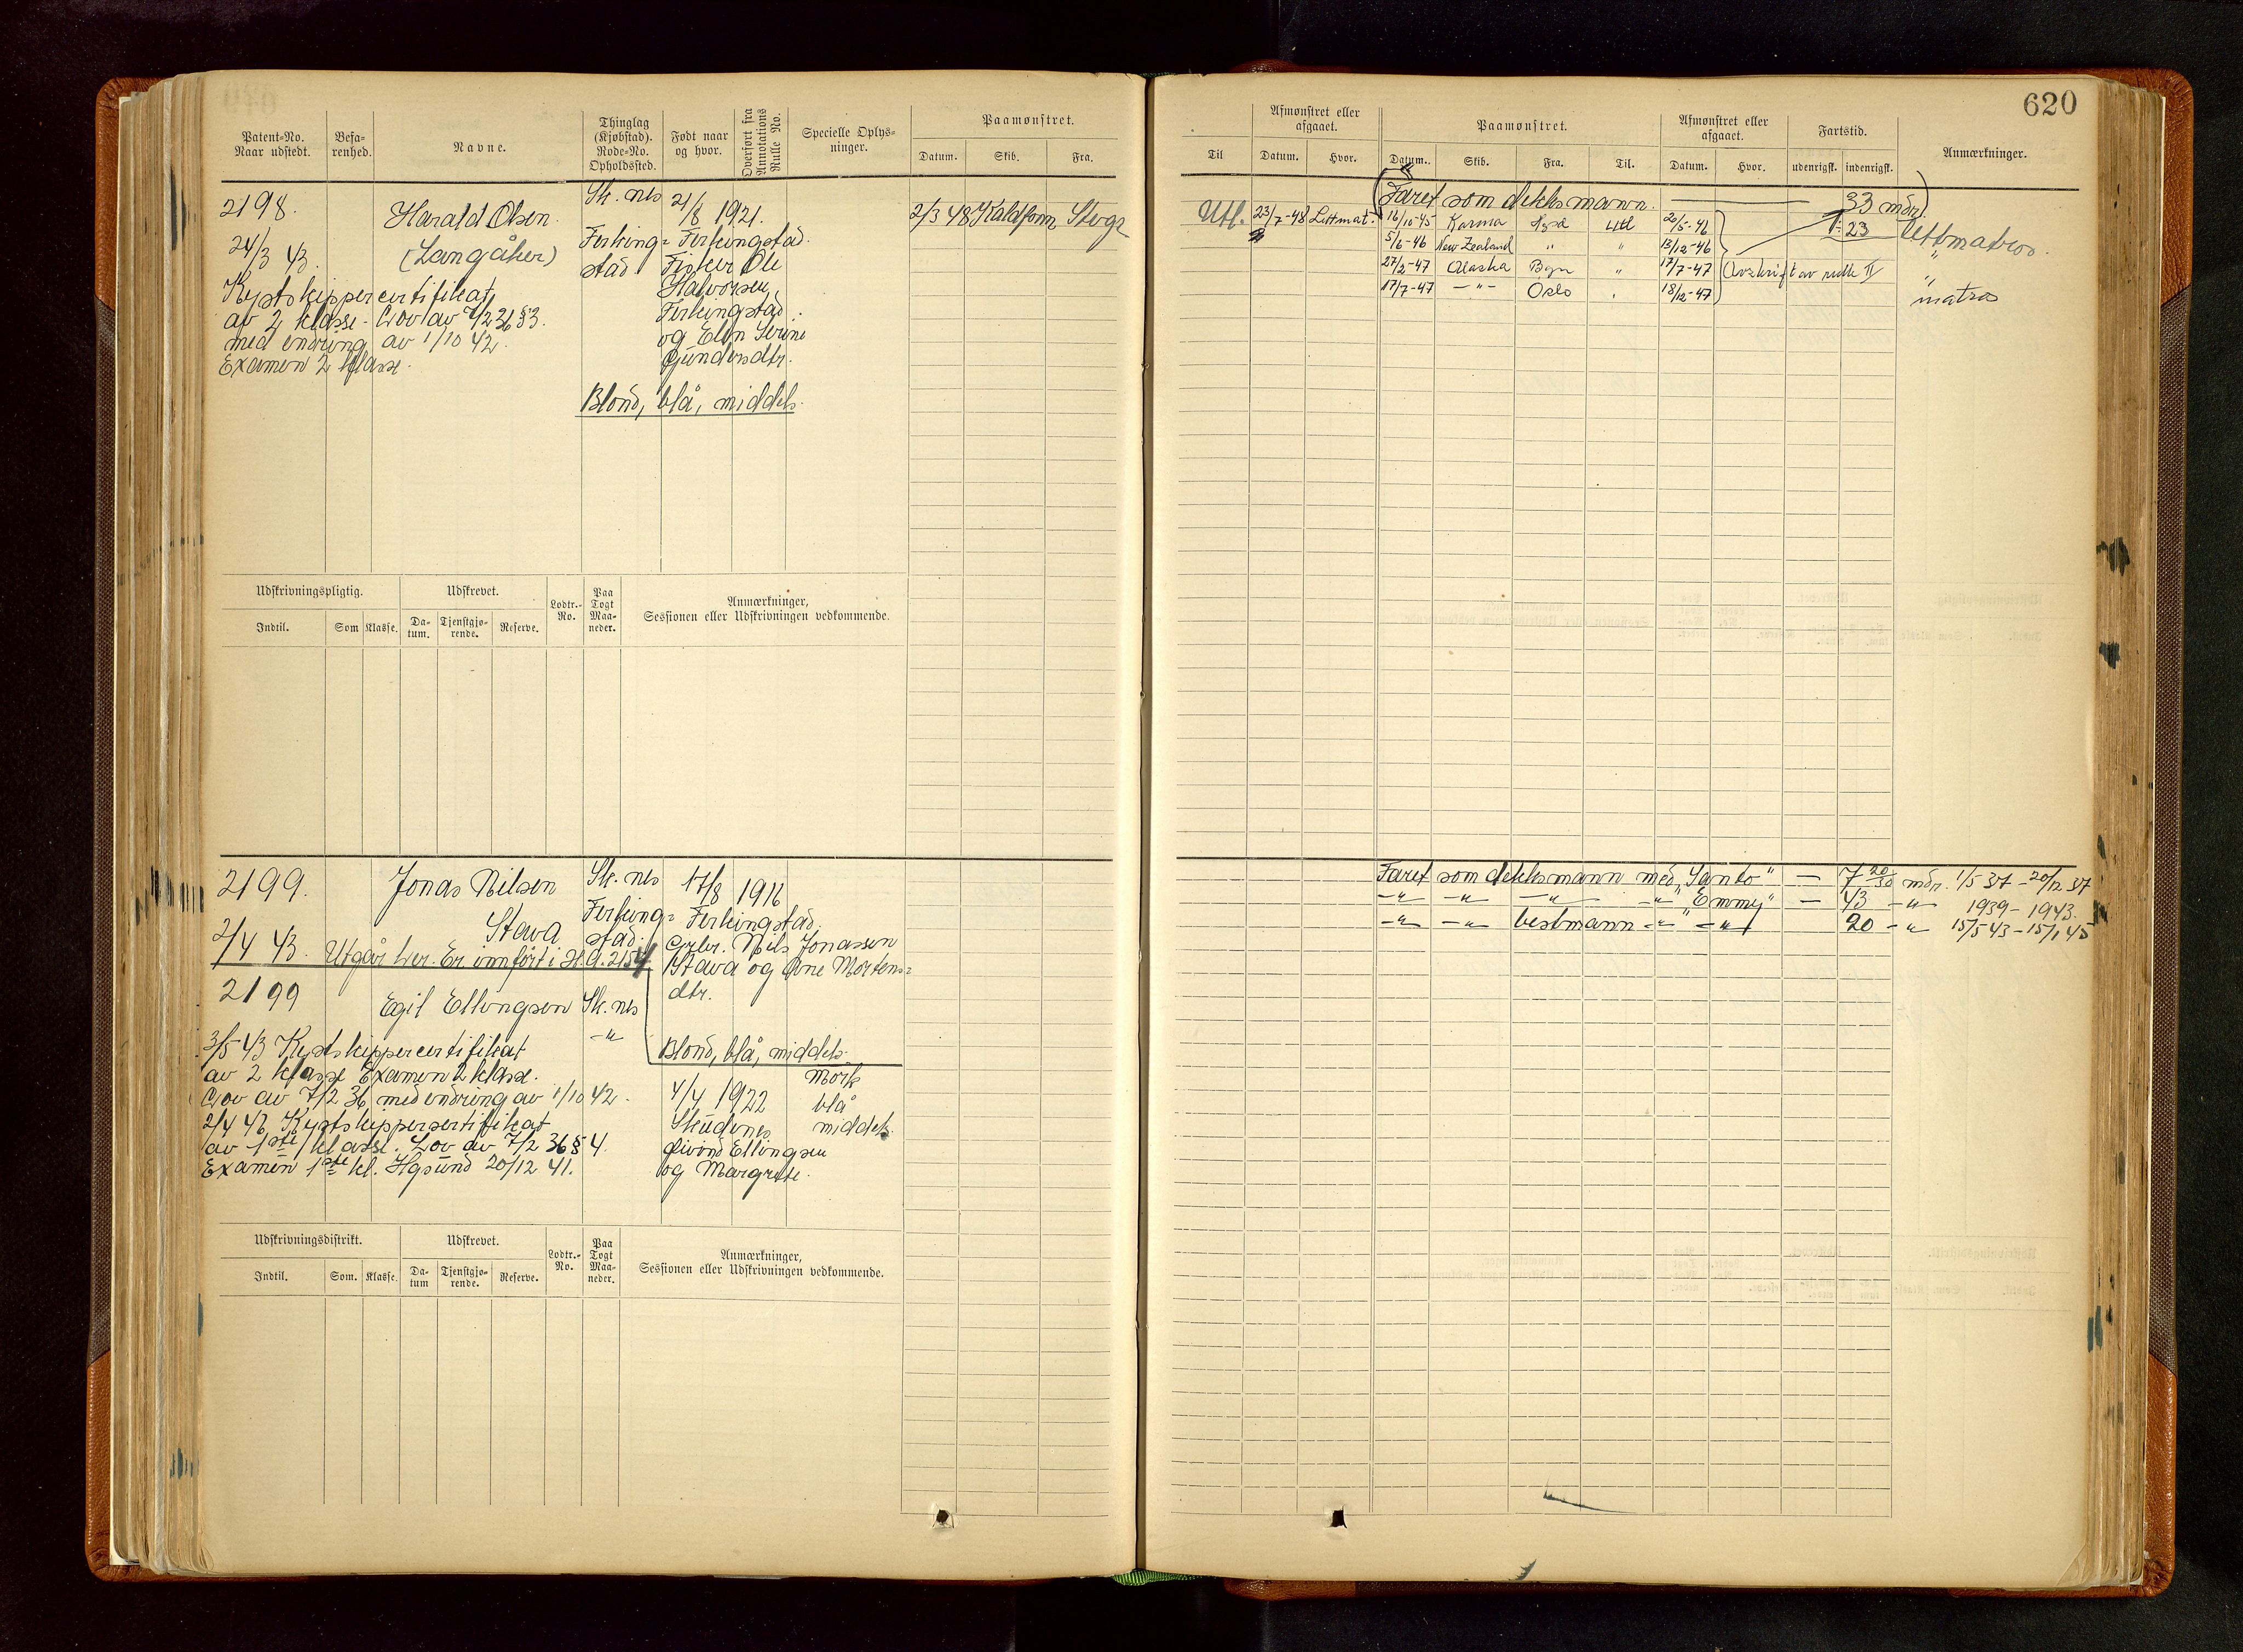 620
Patent-No.
Naar udstedt.
Befa-
renhed.
Navne.
Thinglag
(Kjøbstad).
Rode-No.
Opholdssted.
Født naar
og hvor.
Overført fra
Annotations
Rulle No.
Specielle Oplys-
ninger.
Paamønstret.
Datum. Skib. Fra.
2198.
Harald Olsen.
(Langåker)
Sk. nes
Ferking=
stad.
21/8 1921.
Ferkingstad.
Fisker Ole
Halvorsen,
Ferkingstad
og Elen Serine
Gundersdtr.
Blond, blå, middels.
24/3 43.
Kystskippercertifikat
av 2 klasse. Lov av 7/2 36 §3.
med endring av 1/10 42.
Examen 2 klasse.
2/3 48 Kaldfonn Stvgr
Udskrivningspligtig.
Udskrevet.
Lodtr.-
No.
Paa
Togt
Maa-
neder.
Anmærkninger,
Sessionen eller Udskrivningen vedkommende.
Indtil. Som Klasse.
Da-
tum.
Tjenstgjø-
rende.
Reserve.
2199.
Jonas Nilsen
Stava
Sk. nes
Ferking=
stad.
17/8 1916
Ferkingstad,
Grbr. Nils Jonassen
Stava og Ane Mortens=
dtr.
Blond, blå, middels.
2/4 43. Utgår her. Er innført i H.A. 2154
2199
Egil Ellingsen Sk. nes
-"-
3/5 43 Kystskippercertifikat
av 2 klasse Examen 2 klasse.
Lov av 7/2 36 med endring av 1/10 42.
2/4 46 Kystskippersertifikat
av 1ste klasse. Lov av 7/2 36 § 4.
Examen 1ste kl. Hgsund 20/12 41.
4/4 1922
Skudenes
Øivind Ellingsen
og Margrete.
Mørk
blå
middels.
Udskrivningsdistrikt.
Udskrevet.
Lodtr.-
No.
Paa
Togt
Maa-
neder.
Anmærkninger,
Sessionen eller Udskrivningen vedkommende.
Indtil. Som. Klasse.
Da-
tum
Tjenstgjø-
rende.
Reserve.
Afmønstret eller
afgaaet.
Paamønstret.
Afmønstret eller
afgaaet.
Fartstid.
Anmærkninger.
Til Datum. Hvor. Datum. Skib. Fra. Til. Datum. Hvor. udenrigsk. indenrigsk.
(Faret som dekksmann. 33 mdr)
Utl. 23/7-48 Lettmat. 16/10-45 Karma Utl 20/5-46 23 Lettmatros.
5/6-46 New Zealand " " 13/12-46 "
27/2-47 Alaska Bgn " 17/7-47 Avskrift av rulle II "
17/7-47 -"- Oslo . 18/12-47 matros
Faret som dekksmann med "Santo" — 7 20/30 mdr. 1/5 37 - 20/12 37
-"- -"- -"- -"- "Emmy" — 43 -"- 1939 - 1943.
-"- -"- bestmann -"- -"- 20 -"- 15/5 43 - 15/1 45